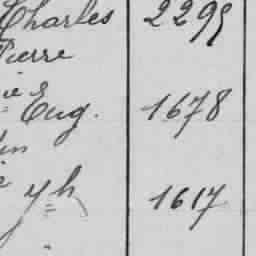 Charles 2295
Pierre
Eug. 1678
yh 1617